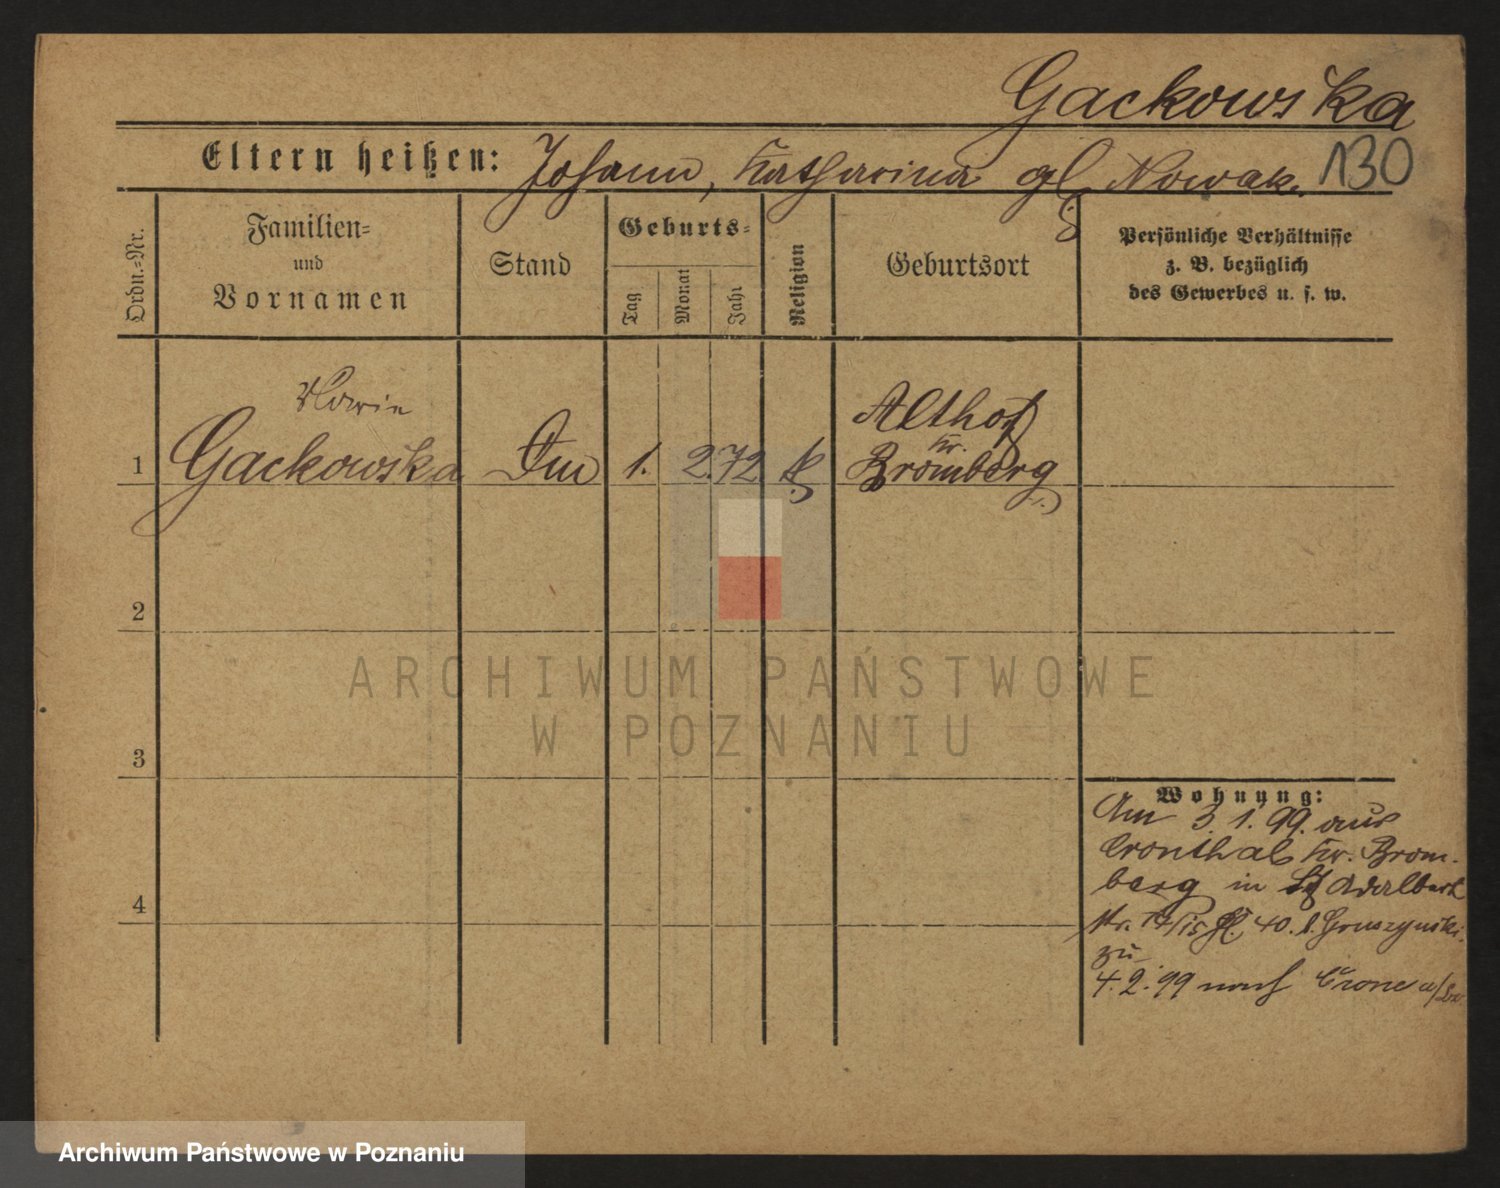 Gackowska
Eltern heißen: Johann, Katharina gb Nowak.
130
Ordn.-Nr.
Familien-
und
Vornamen
Stand
Geburts-
Tag
Monat
Jahr
Religion
Geburtsort
Persönliche Verhältnisse
z. B. bezüglich
des Gewerbes u. s. w.
1
Marie
Gackowska
1. 2. 72 k
Althof
Kr.
Bromberg
2
3
4
Wohnung:
Am 3. 1. 99. aus
Cronthal Kr. Brom-
berg in St Adalbert
str. 14/15 40. b. Gruszynski.
zu
4. 2. 99 nach Crone a/Br.
ARCHIWUM PAŃSTWOWE
W POZNANIU
Archiwum Państwowe w Poznaniu